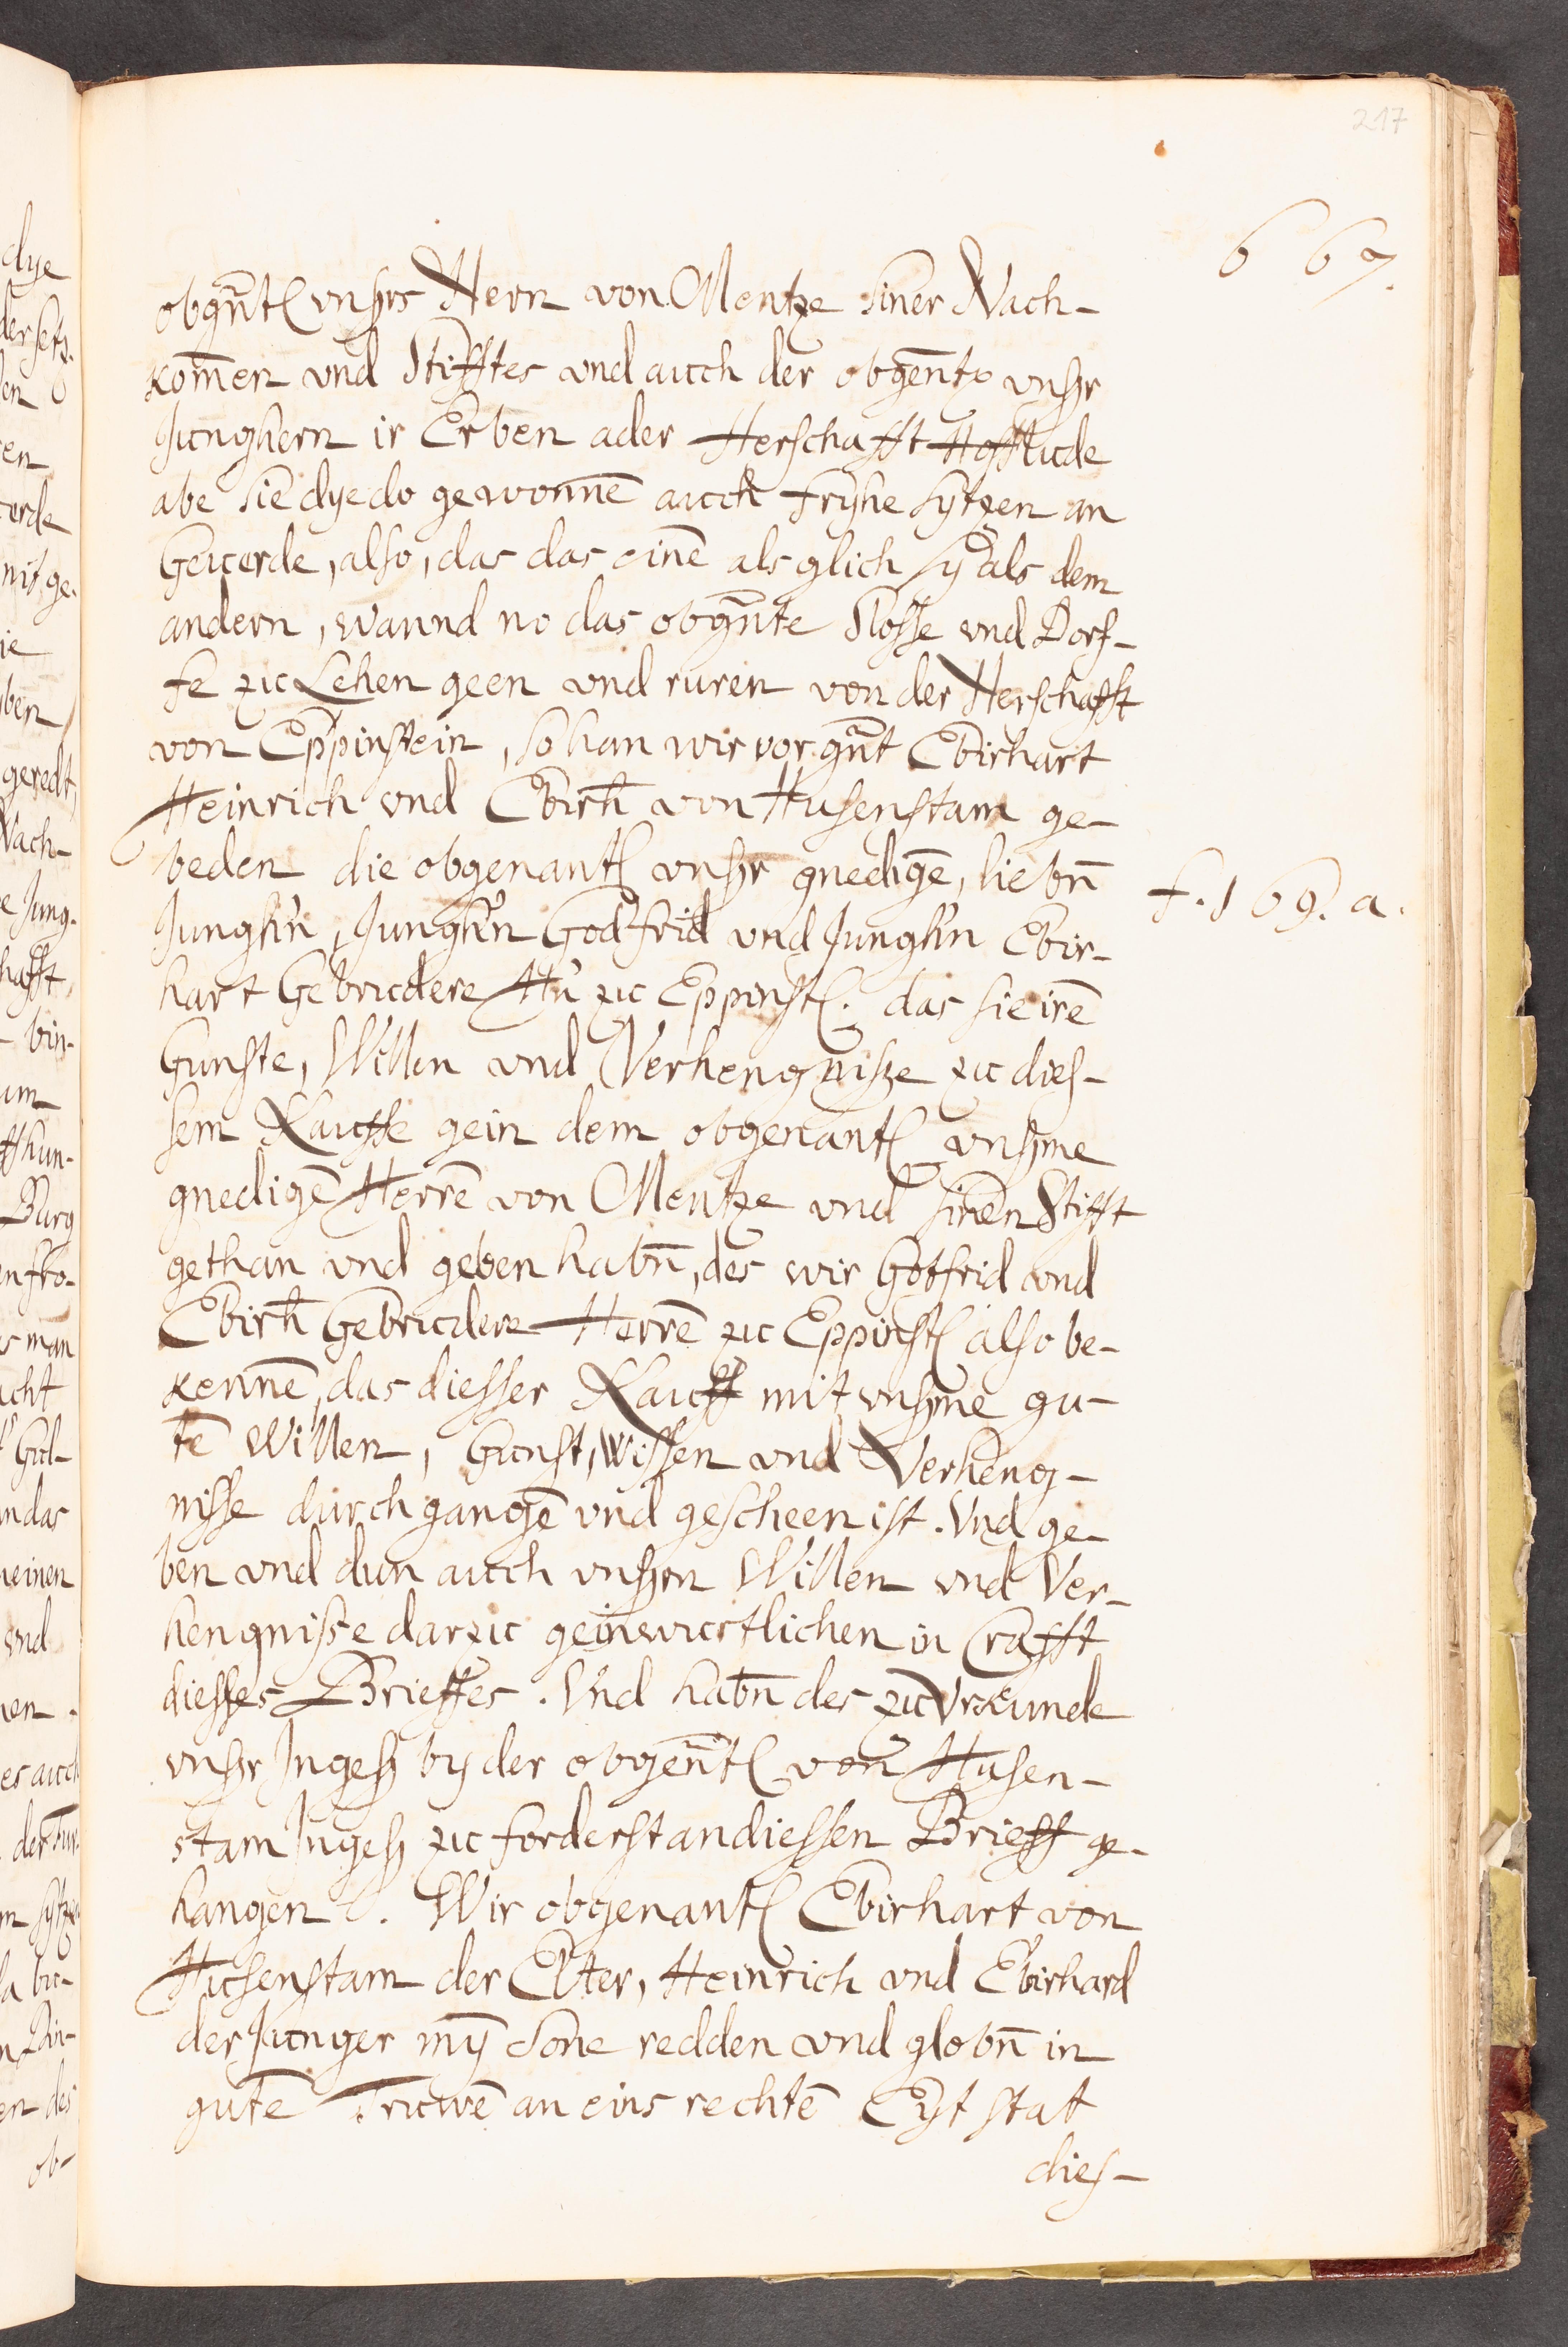 217
667.
obgn̄tl vnsrs Hern von Mentze siner Nach-
kom̄en vnd Stifftes vnd auch der obgen̄t vnsr
Junghern ir Erben ader Herschafft Hofflude
abe sie dye do gewonnē auch fryhe sytzen an
Geuerde, also, das das einē als glich sy als dem
andern, wannd no das obgn̄nte Slosse vnd Dorf-
fe zu Lehen geen vnd ruren von der Herschafft
von Eppinstein, so han wir vorgn̄t Ebirhart
Heinrich vnd Ebirh̄ von Husenstam ge-
beden die obgenantl vnsr gnedigē, liebn̄
f. 169. a.
Jungh'n, Jungh'n Godfrid vnd Jungh'n Ebir-
hart Gebrudere Hn' zu Eppinstl. das sie irē
Gunste, Willen vnd Verhengnisze zu dies-
sem Kauffe gein dem obgenantl vnsme
gnedigē Herrē von Mentze vnd sinen Stifft
gethan vnd geben habn̄, des wir Gotfrid vnd
Ebirh̄ Gebrudere Herrē zu Eppinstl also be-
kennē, das diesser Kauff mit vnsme gu-
tē Willen, Gunst, wissen vnd Verheng-
nisse durchgangē vnd gescheen ist. Vnd ge-
ben vnd dun auch vnsrn Willen vnd Ver-
hengnisse darzu geinwurtlichen in Crafft
diesses Brieffes. Vnd habn̄ des zu Urkunde
vnsr Ingesz by der obgen̄tl von Husen-
stam Ingesz zu forderst an diessen Brieff ge-
hangen. Wir obgenantl Ebirhart von
Husenstam der Elter, Heinrich vnd Ebirhard
der Junger mȳ Sone redden vnd globn̄ in
gutē Truwē an eins rechtē Eyt stat
dies-